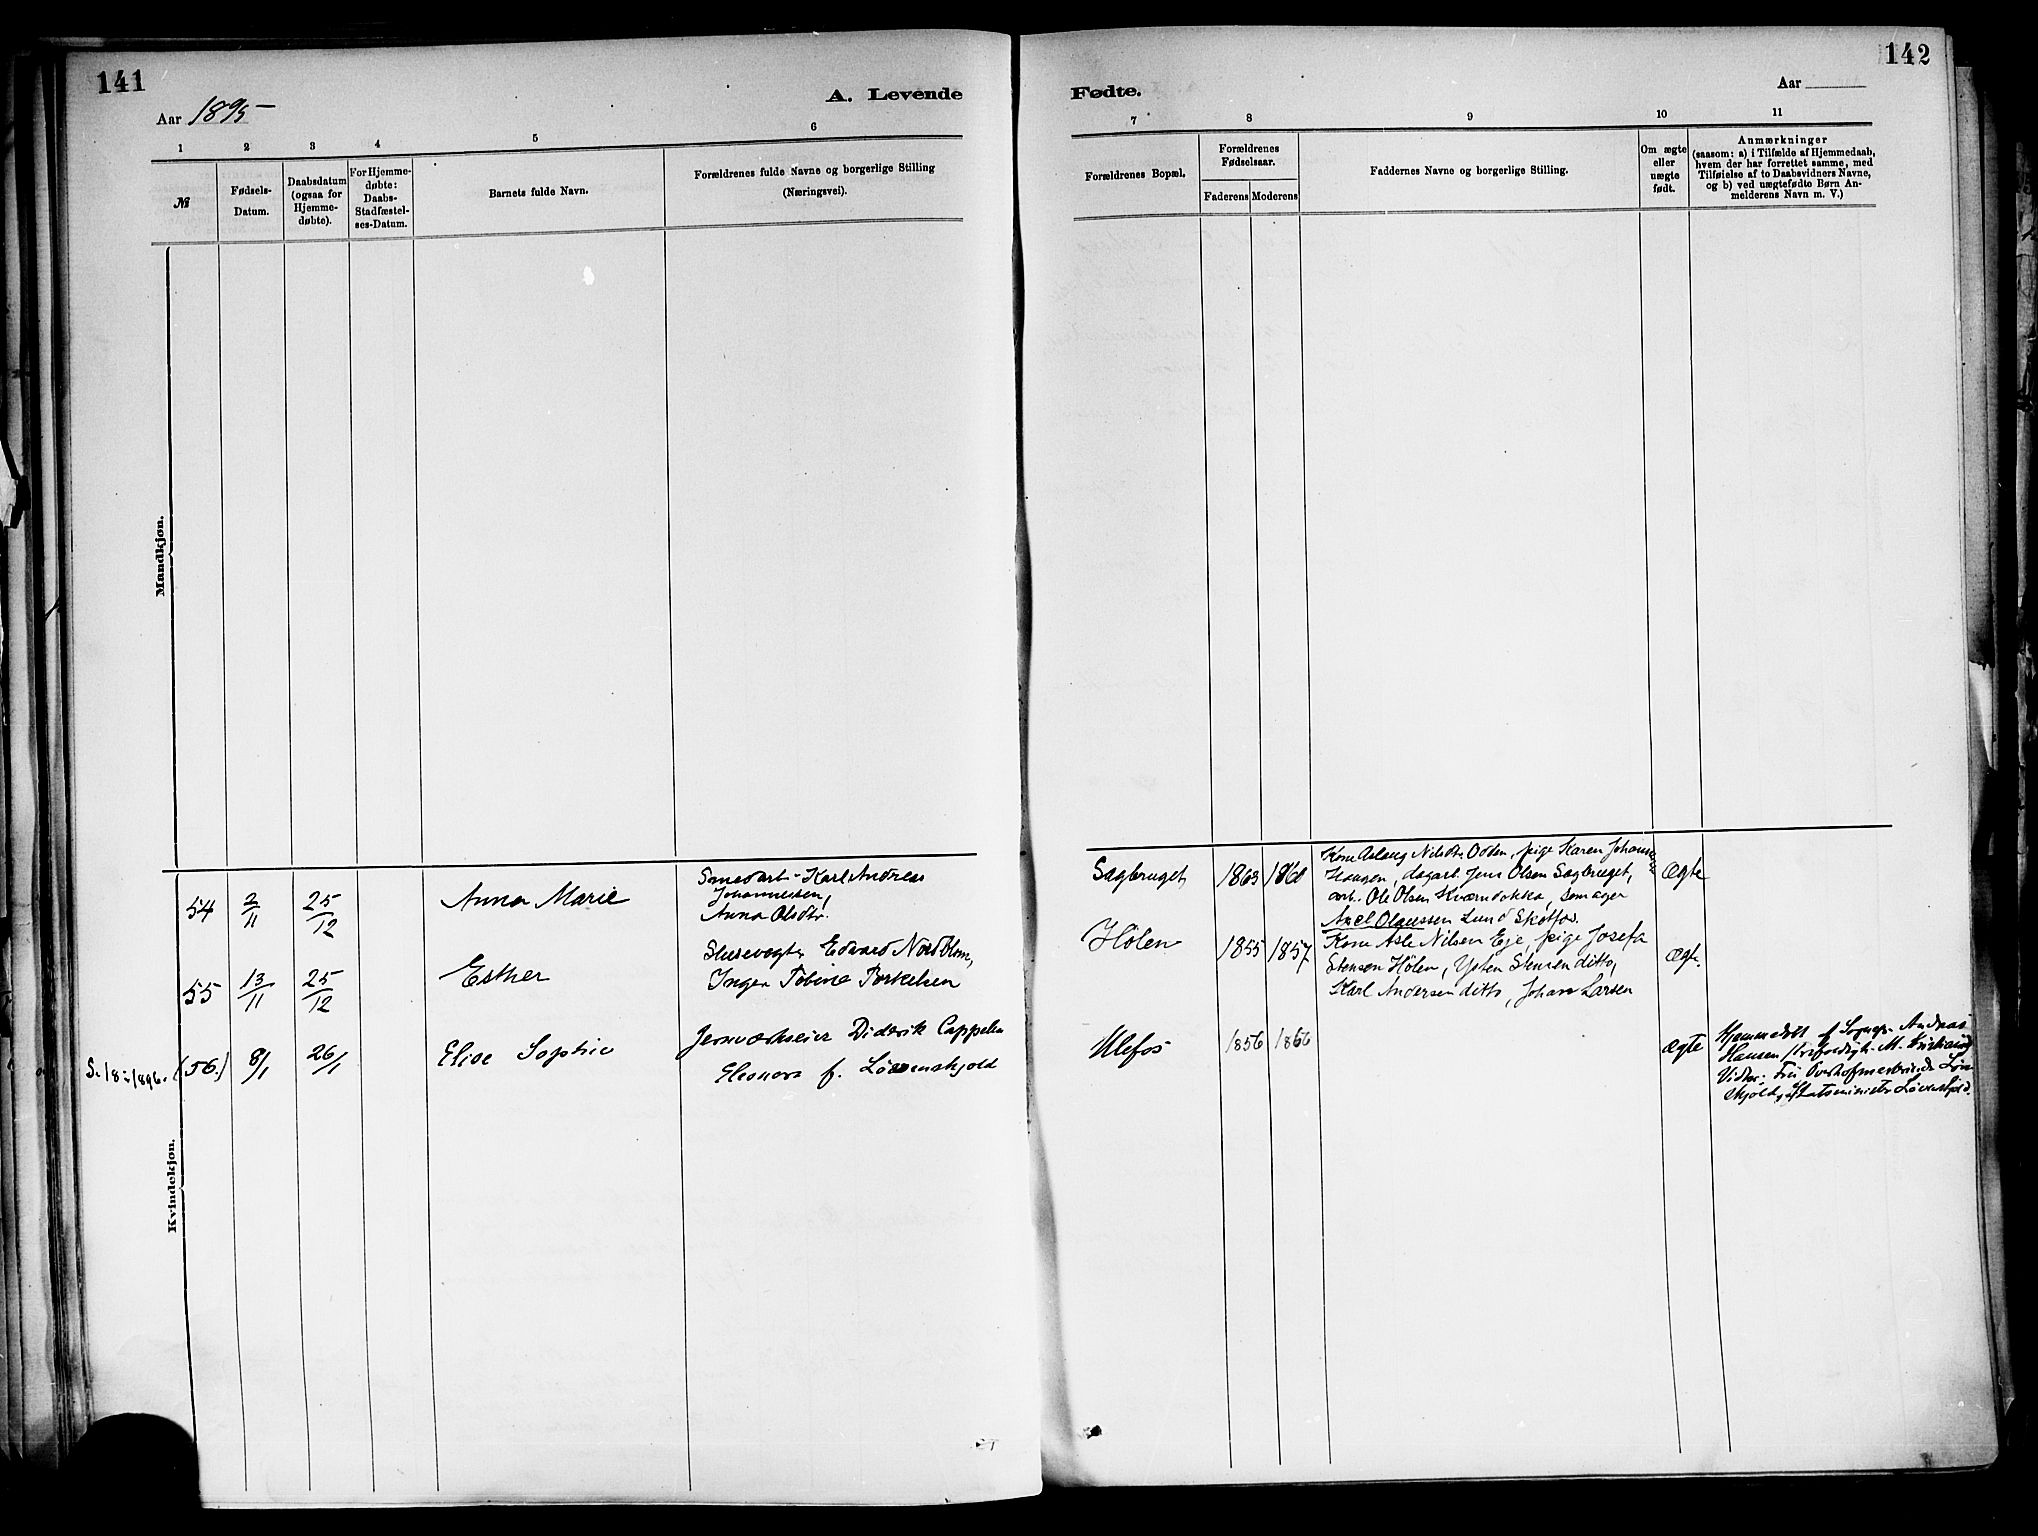 141
Aar 1895
A. Levende
1 2 3 4 5 6
№
Fødsels-
Datum.
Daabsdatum
(ogsaa for
Hjemme-
døbte).
For Hjemme-
døbte:
Daabs-
Stadfæstel-
ses-Datum.
Barnets fulde Navn.
Forældrenes fulde Navne og borgerlige Stilling
(Næringsvei).
Mandkjøn.
Kvindekjøn.
54 2/11 25/12 Anna Marie
Karl Andreas
Johannesen,
Anna Olsdtr.
55 13/11 25/12 Esther
Slusevogter Edvard Nordblom,
Inger Tobine Torkelsen
(56.) 8/1 26/1 Elise Sophie
Jernværkseier Diderik Cappelen
Eleonora f. Løvenskjold
142
Fødte.
Aar
7 8 9 10 11
Forældrenes Bopæl.
Forældrenes
Fødselsaar.
Faderens Moderens
Faddernes Navne og borgerlige Stilling.
Om ægte
eller
uægte
født.
Anmærkninger
(saasom: a) i Tilfælde af Hjemmedaab,
hvem der har forrettet samme, med
Tilføielse af to Daabsvidners Navne,
og b) ved uægtefødte Børn An-
melderens Navn m. V.)
Sagbruget 1863 1860
Kone Aslaug Nilsdtr. Odden, pige Karen Johansen
Haugen, dagarb. Jens Olsen Sagbruget,
arb. Ole Olsen Kværndokka, sømager
Axel Olaussen Lund Skotfos.
Ægte
Hölen 1855 1857
Kone Asle Nilsen Eje, pige Josefa
Stensen Hölen, Ysten Stensen ditto,
Karl Andersen ditto, Johan Larsen
Ægte.
Ulefos 1856 1866
Ægte
Hjemmedøbt af Sognepr. Andreas
Hansen